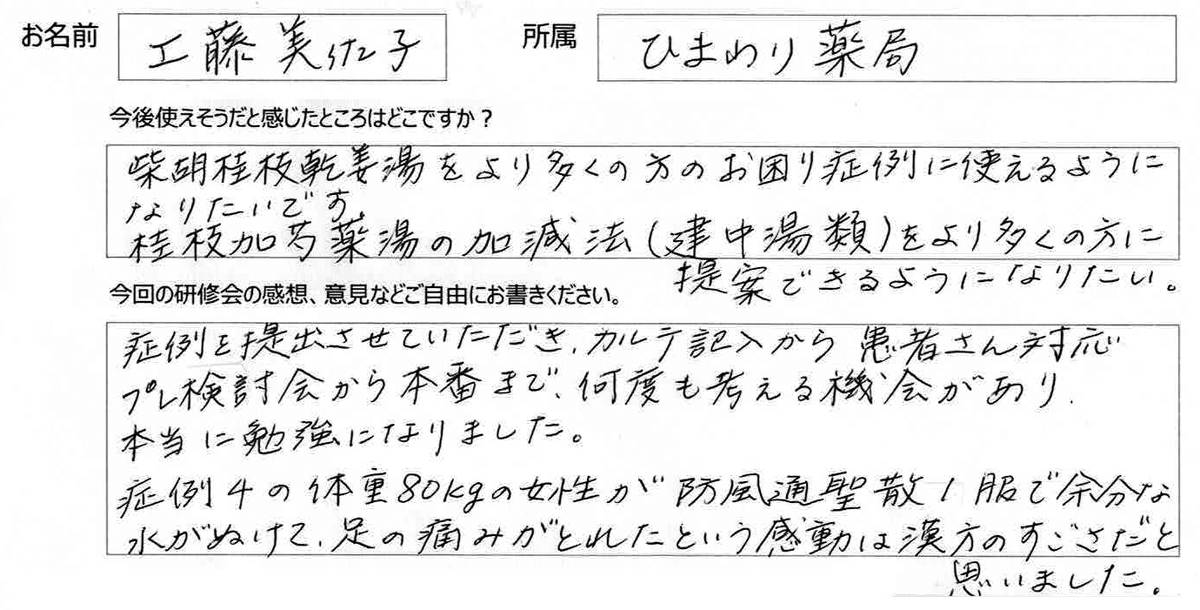 お名前 工藤美佐子 所属 ひまわり薬局
今後使えそうだと感じたところはどこですか？
柴胡桂枝乾姜湯をより多くの方のお困り症例に使えるように
なりたいです。
桂枝加芍薬湯の加減法(建中湯類)をより多くの方に
提案できるようになりたい。
今回の研修会の感想、意見などご自由にお書きください。
症例を提出させていただき、カルテ記入から患者さん対応
プレ検討会から本番まで、何度も考える機会があり、
本当に勉強になりました。
症例4の体重80kgの女性が防風通聖散1服で余分な
水がぬけて、足の痛みがとれたという感動は漢方のすごさだと
思いました。